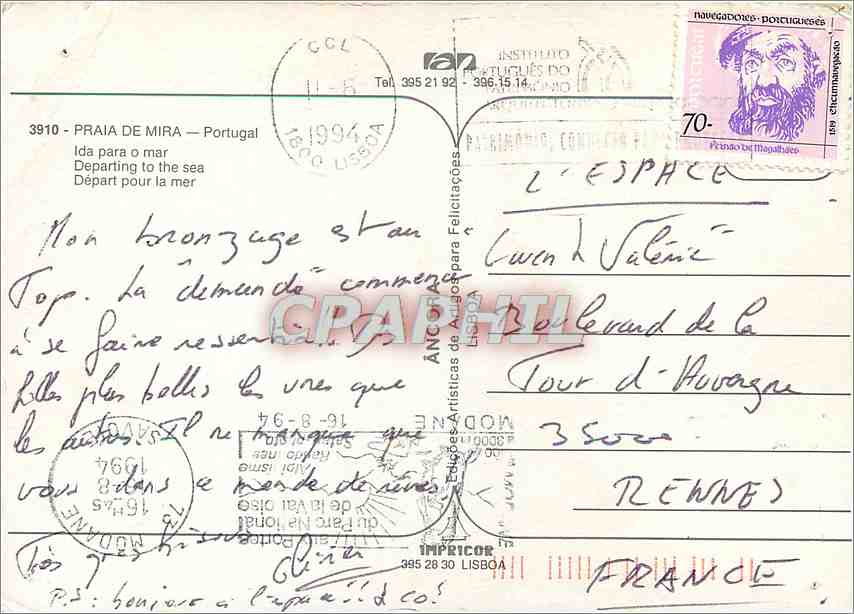 CCL
11-8
1994
1800 LISBOA
ran
Tel. 395 21 92 - 396.15.14
INSTITUTO
PORTUGUÊS DO
PATRIMÓNIO
navegadores · portugueses
1519 circumnavegação
70-
Fernão de Magalhães
3910 - PRAIA DE MIRA — Portugal
Ida para o mar
Departing to the sea
Départ pour la mer
Mon bronzage est au
Top. La "demande" commence
à se faire ressentir.
belles plus belles les unes que
les autres. Il ne manque que
vous dans ce monde de rêves
Très gros bisous
Olivier
P.S: bonjour à l'
& co!
ÂNCORA
Edições Artísticas de Artigos para Felicitações
LISBOA
IMPRICOR
395 28 30 LISBOA
L'ESPACE
Gwen & Valérie
Boulevard de la
Tour d'Auvergne
35000
RENNES
FRANCE
CPARPHIL
MODANE
16-8-94
73 MODANE
16 H 45
1994
SAVOIE
aux Portes
du Parc National
de la Vanoise
Alpinisme
Randonnées